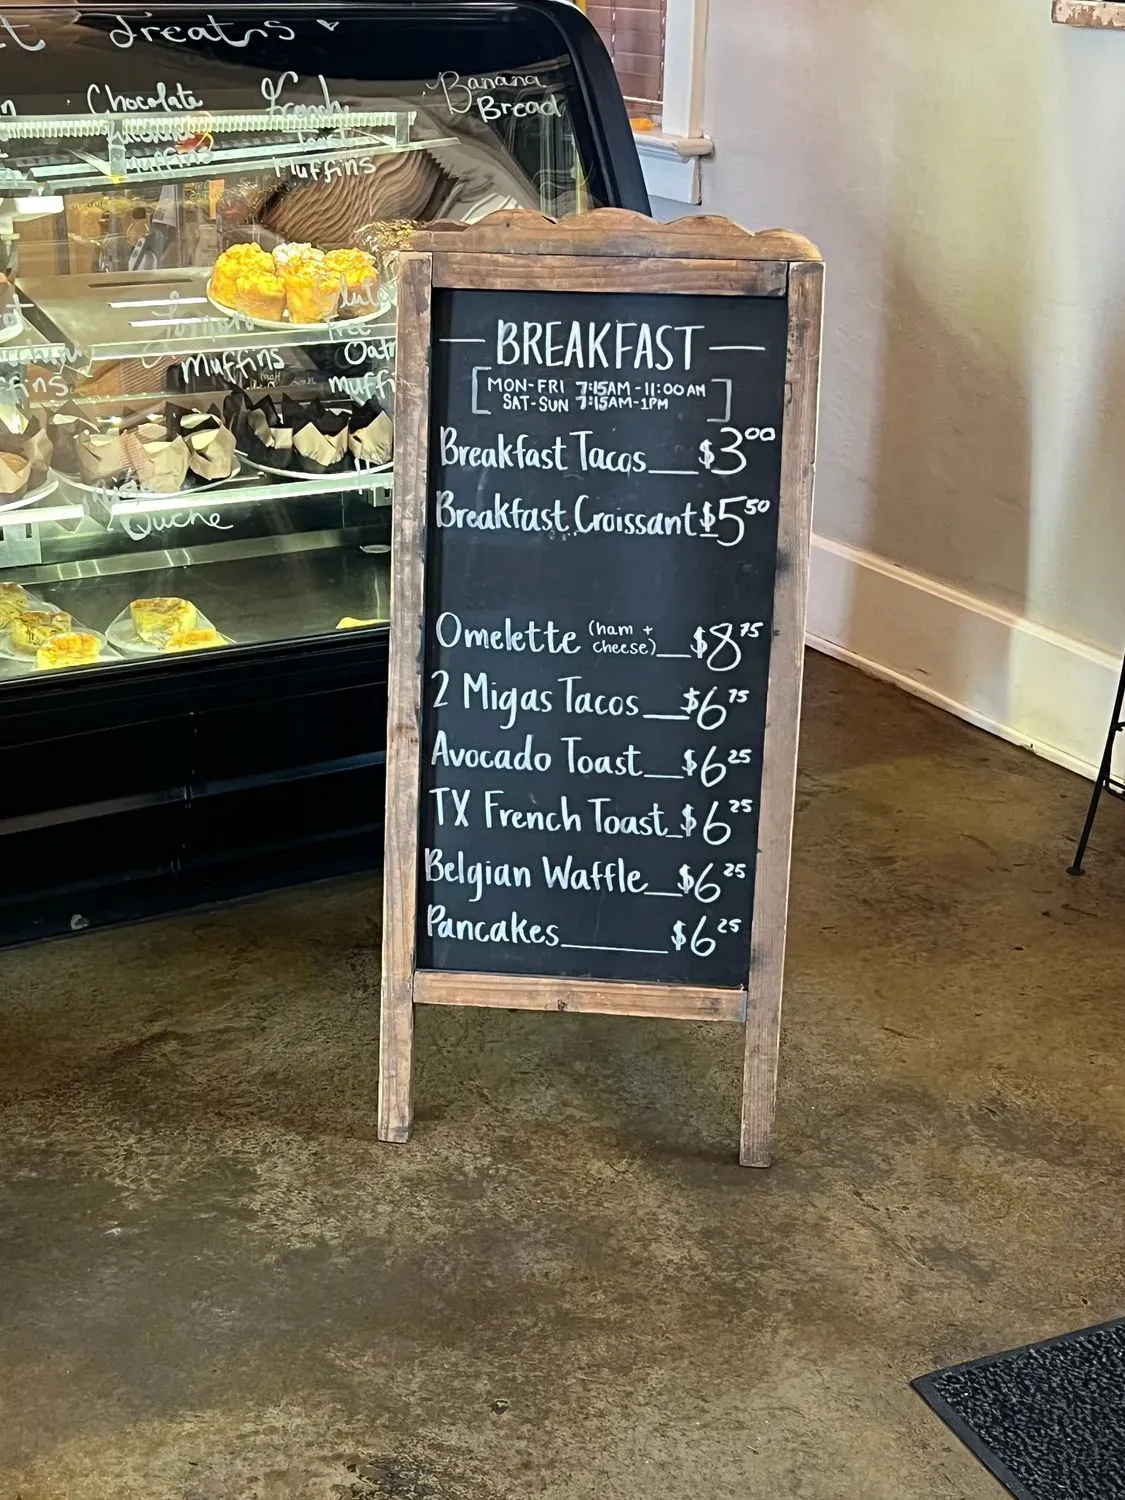 Treats
Chocolate
French
Banana
Bread
Muffins
Toast
Muffins
Muffins
muffi
Quiche
BREAKFAST
MON-FRI 7:15AM-11:00AM
SAT-SUN 7:15AM-1PM
Breakfast Tacos $3.00
Breakfast Croissant $5.50
Omelette (ham + cheese) $8.75
2 Migas Tacos $6.75
Avocado Toast $6.25
TX French Toast $6.25
Belgian Waffle $6.25
Pancakes $6.25